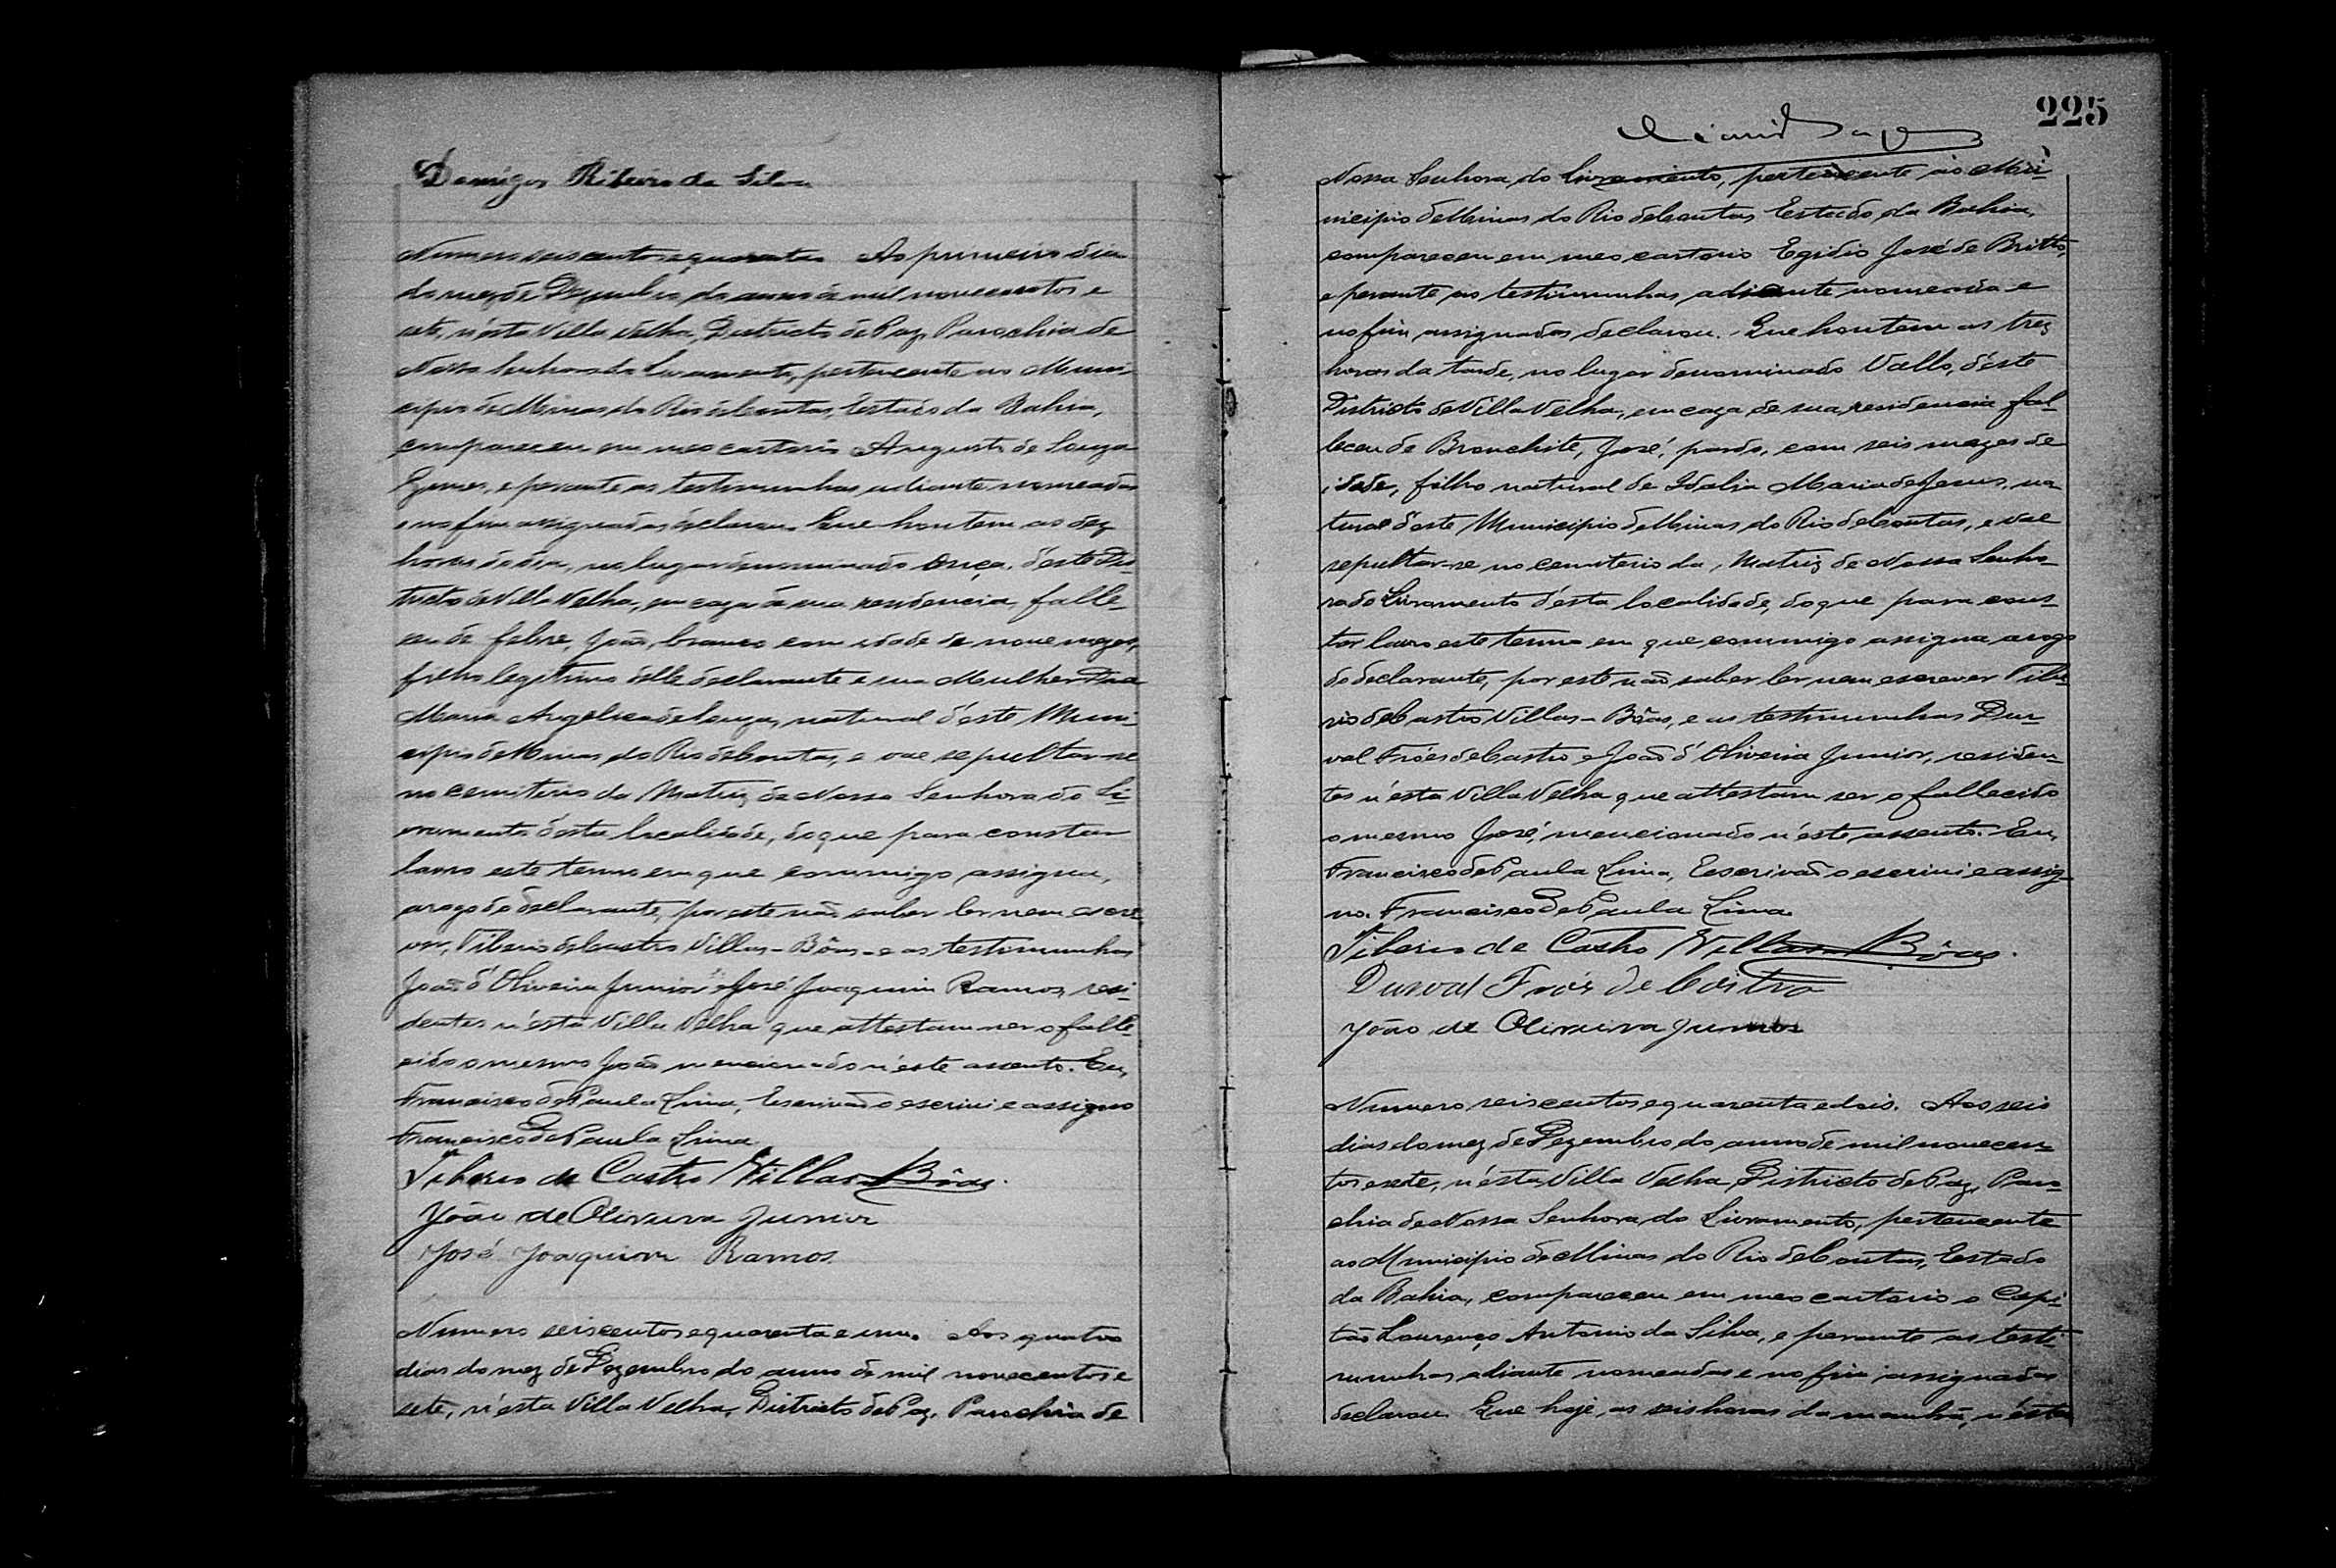 Domingos Ribeiro da Silva
Numero seiscentos e quarenta Ao primeiro dia
do mez de Dezembro do anno de mil novecentos e
sete, n'esta Villa Velha, Districto de Paz, Parochia de
Nossa Senhora do Livramento, pertencente ao Muni-
cipio de Minas do Rio de Contas, Estado da Bahia,
compareceu em meo cartorio Augusto de Souza
e perante as testimunhas adiante nomeadas
e no fim assignadas declarou. Que hontem as dez
horas do dia, no lugar denominado Onça, d'este Dis-
tricto de Villa Velha, em caza de sua residencia, falle-
ceu de febre, João, branco com idade de nove mezes,
filho legitimo d'elle declarante e sua Mulher Dna
Maria Angelica de Souza, natural d'este Muni-
cipio de Minas do Rio de Contas, e vae sepultar-se
no cemiterio da Matriz de Nossa Senhora do Li-
vramento d'esta localidade, do que para constar
lavro este termo em que commigo assigna,
arogo do declarante, por este não saber ler nem escre-
ver, Tiberio de Castro Villas-Bôas e as testimunhas
João d'Oliveira Junior e José Joaquim Ramos, resi-
dentes n'esta Villa Velha que attestam ser o falle-
cido o mesmo João mencionado n'este assento. Eu,
Francisco de Paula Lima, Escrivão o escrivi e assigno
Francisco de Paula Lima
Tiberio de Castro Villas Bôas.
João de Oliveira Junior
José Joaquim Ramos
Numero seiscentos e quarenta e um. Aos quatro
dias do mez de Dezembro do anno de mil novecentos e
sete, n'esta Villa Velha, Districto de Paz, Parochia de
225
Nossa Senhora do Livramento, pertencente ao Mu-
nicipio de Minas do Rio de Contas, Estado da Bahia,
compareceu em meo cartorio Egidio José de Britto,
e perante as testimunhas, adiante nomeada e
no fim assignadas declarou. Que hontem as trez
horas da tarde, no lugar denominado Vallo, d'este
Districto de Villa Velha, em caza de sua residencia fal-
leceu de Bronchite, José, pardo, com seis mezes de
idade, filho natural de Idalia Maria de Jesus, na-
tural d'este Municipio de Minas do Rio de Contas, e vae
sepultar-se no cemiterio da Matriz de Nossa Senho-
ra do Livramento d'esta localidade, do que para cons-
tar lavro este termo em que commigo assigna arogo
do declarante, por este não saber ler nem escrever Tibe-
rio de Castro Villas-Bôas, e as testimunhas Dur-
val Fróes de Castro e João d'Oliveira Junior, residen-
tes n'esta Villa Velha que attestam ser o fallecido
o mesmo José, mencionado n'este assento. Eu,
Francisco de Paula Lima, Escrivão o escrivi e assig-
no. Francisco de Paula Lima
Tiberio de Castro Villas Bôas.
Durval Fróes de Castro
João de Oliveira Junior
Numero seiscentos e quarenta e dois. Aos seis
dias do mez de Dezembro do anno de mil novecen-
tos e sete, n'esta Villa Velha Districto de Paz, Paro-
chia de Nossa Senhora do Livramento, pertencente
ao Municipio de Minas do Rio de Contas, Estado
da Bahia, compareceu em meo cartorio o Capi-
tão Lourenço Antonio da Silva, e perante as testi-
munhas adiante nomeadas e no fim assignadas
declarou Que hoje, as seis horas da manhã, n'esta